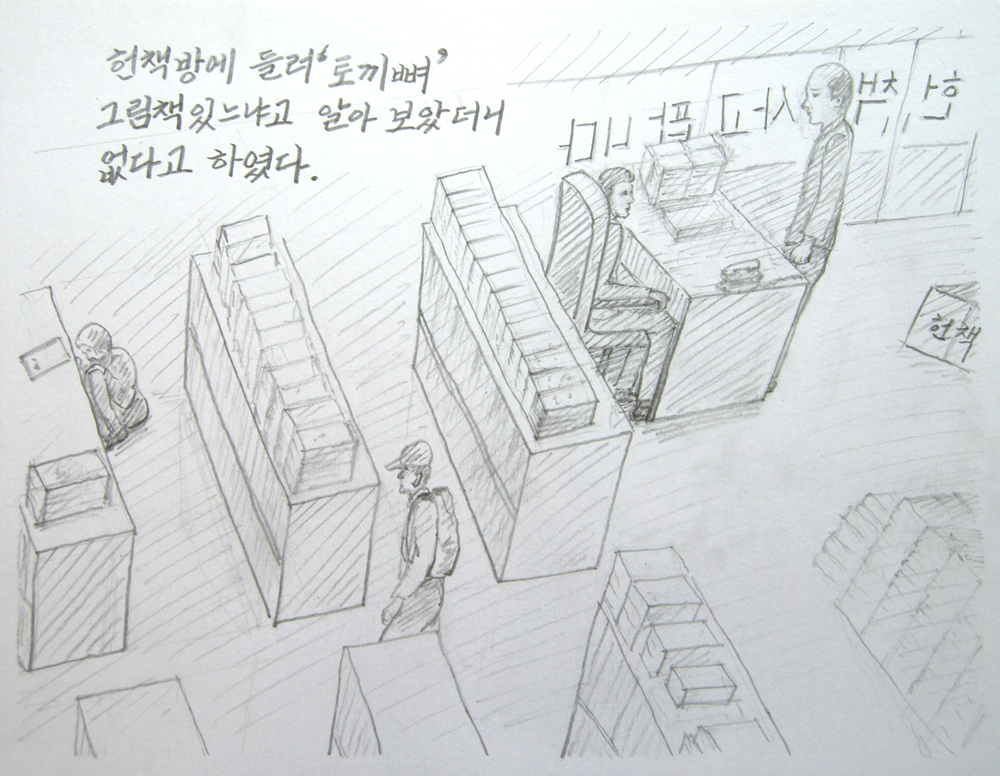 헌책방에 들려 ‘토끼뼈’
그림책있느냐고 알아 보았더니
없다고 하였다.
헌책 사고 팝니다
헌책